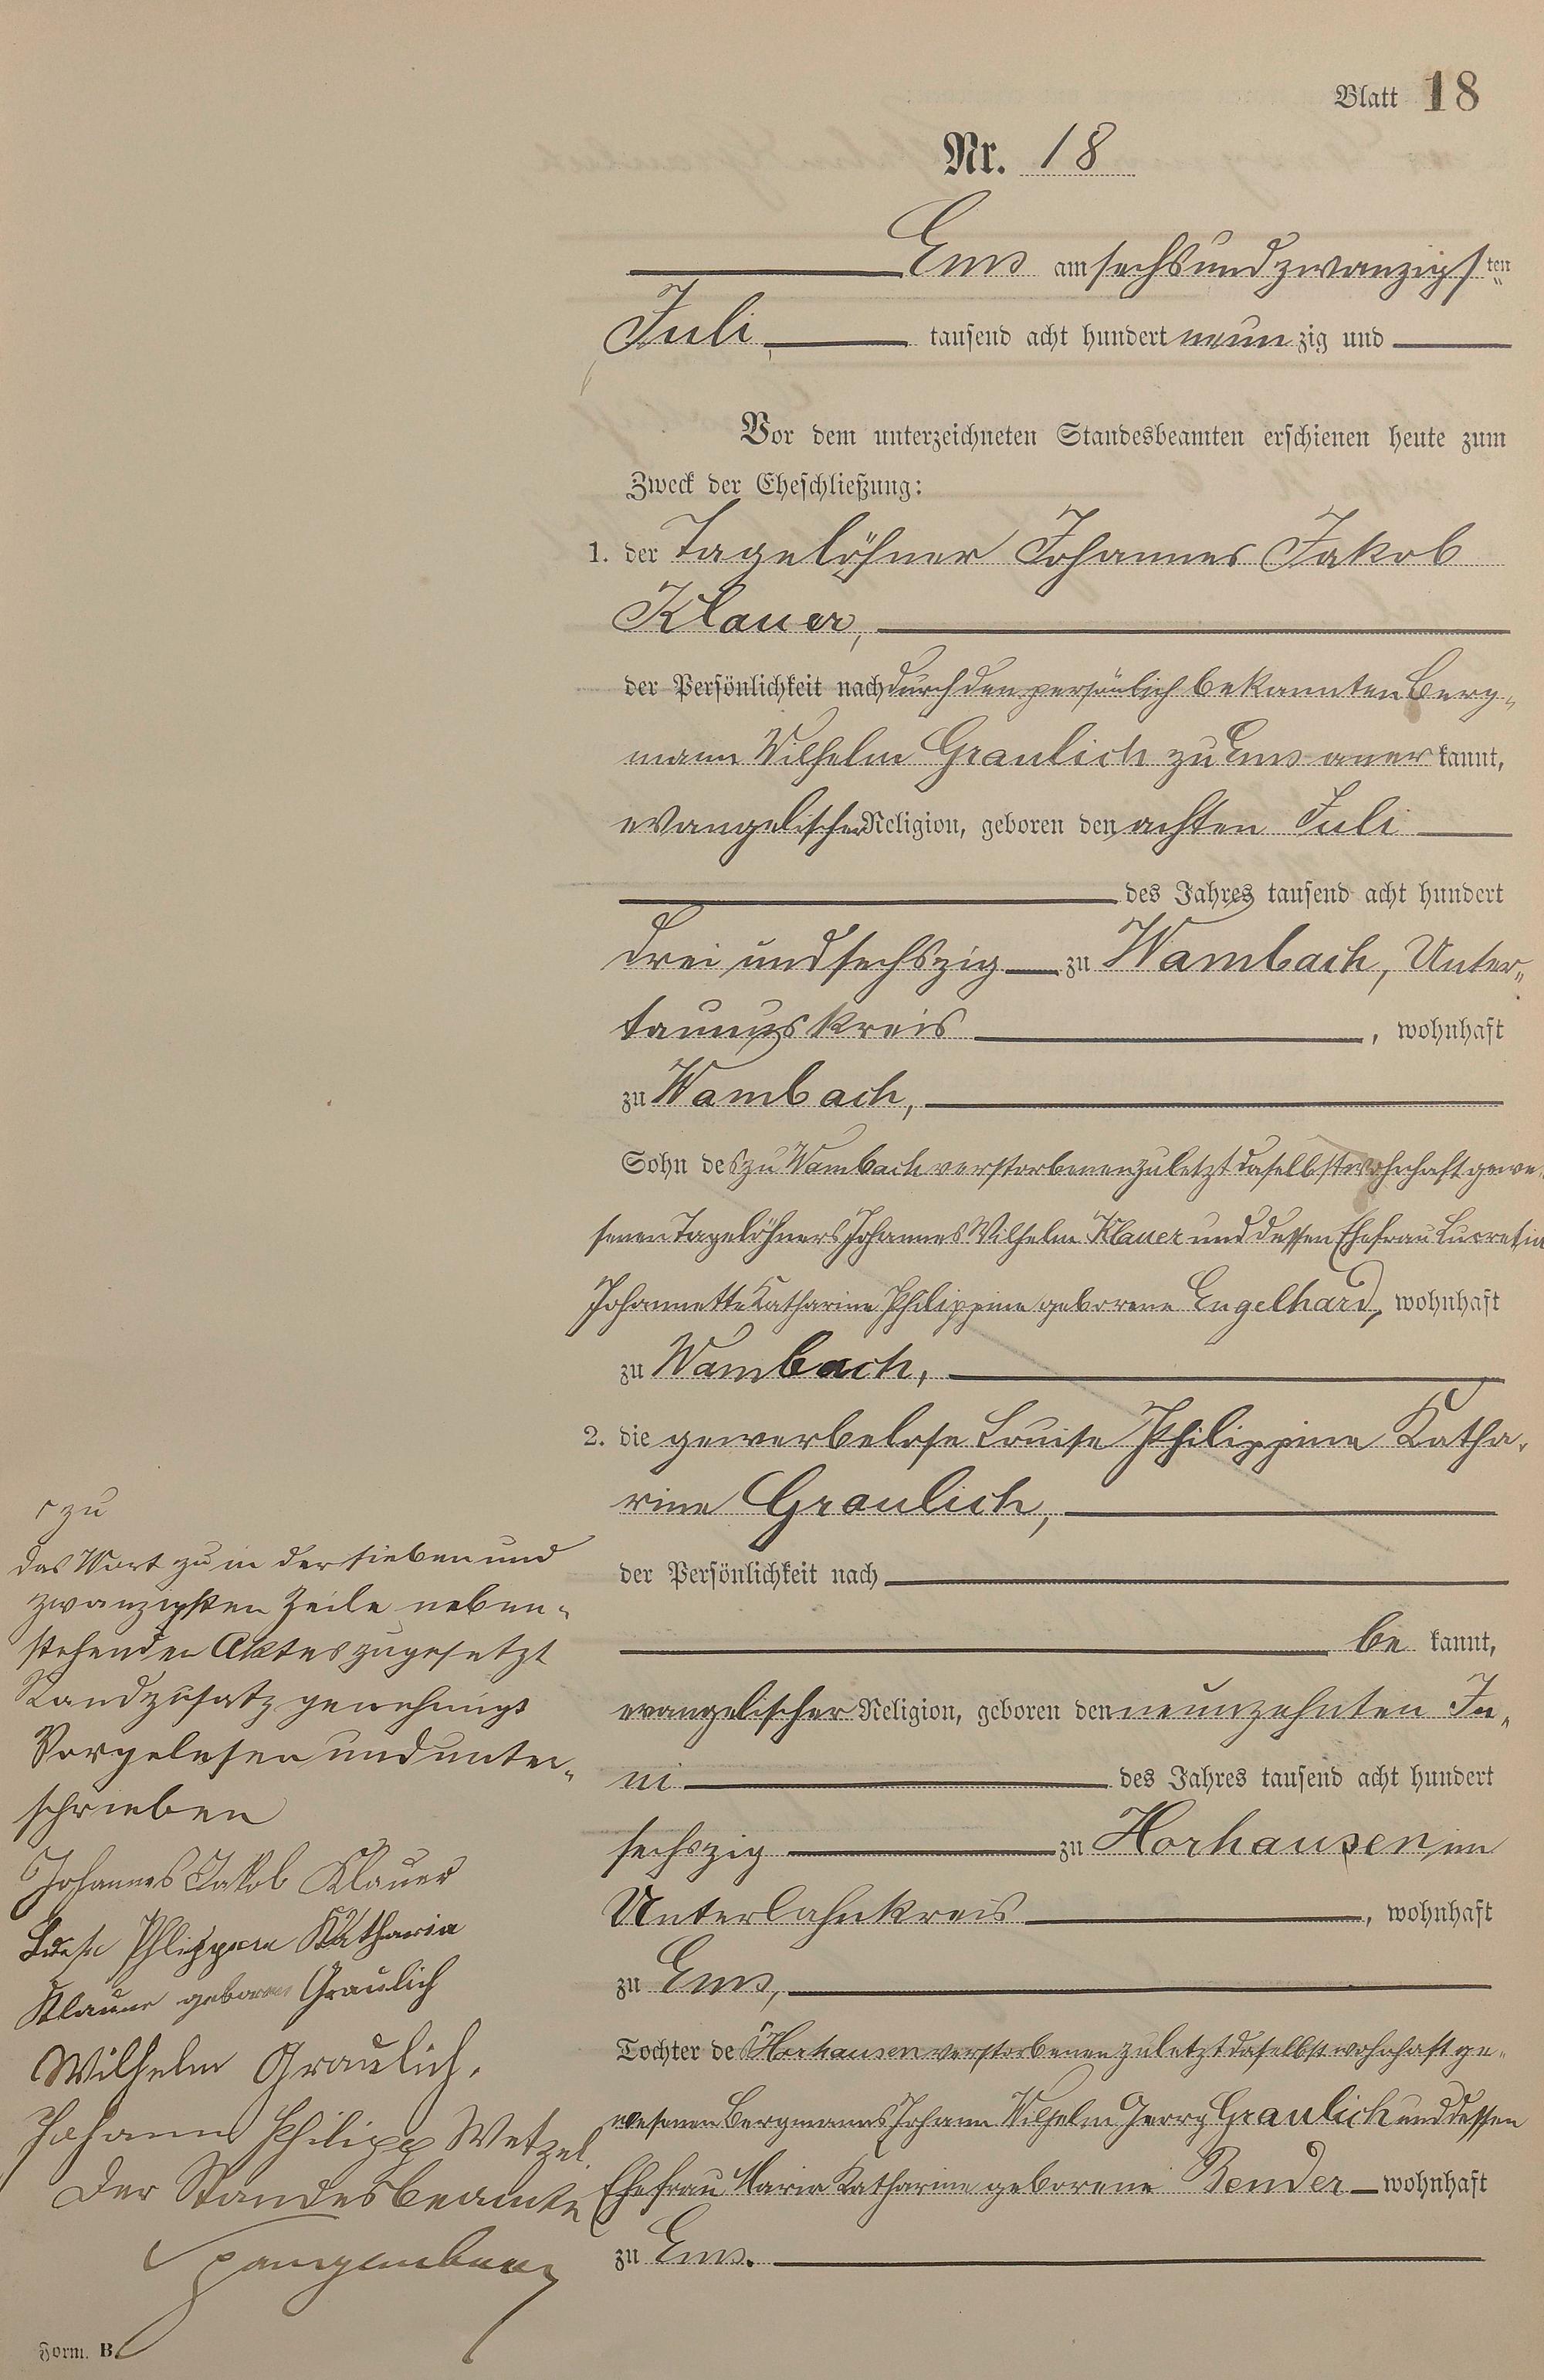 Blatt 18
Nr. 18
Ems am sechsundzwanzigsten
Juli tausend acht hundert neunzig und
Vor dem unterzeichneten Standesbeamten erschienen heute zum
Zweck der Eheschließung:
1. der Tagelöhner Johannes Jakob
Klauer,
der Persönlichkeit nach durch den persönlich bekannten Berg-
mann Wilhelm Graulich zu Ems anerkannt,
evangelischer Religion, geboren den achten Juli
des Jahres tausend acht hundert
drei und sechszig zu Wambach, Unter-
taunuskreis, wohnhaft
zu Wambach,
Sohn des zu Wambach verstorbenen zuletzt daselbst wohnhaft gewe-
senen Tagelöhners Johannes Wilhelm Klauer und dessen Ehefrau Lucretia
Johannette Katharine Philippine geborene Engelhard, wohnhaft
zu Wambach,
2. die gewerbelose Louise Philippine Katha-
rine Graulich,
der Persönlichkeit nach
bekannt,
evangelischer Religion, geboren den neunzehnten Ju-
ni des Jahres tausend acht hundert
sechszig zu Horhausen, im
Unterlahnkreis, wohnhaft
zu Ems,
Tochter des Horhausen verstorbenen zuletzt daselbst wohnhaft ge-
wesenen Bergmanns Johann Wilhelm Georg Graulich und dessen
Ehefrau Maria Katharine geborene Bender wohnhaft
zu Ems.
┌ zu
das Wort zu in der sieben und
zwanzigsten Zeile neben-
stehenden Aktes zugesetzt
Randzusatz genehmigt
Vorgelesen und unter-
schrieben
Johannes Jakob Klauer
Phlippena Katharia
Klauer geboren Graulich
Wilhelm Graulich.
Johann Philipp Wetzel.
Der Standesbeamte
Spangenberg
Form. B.